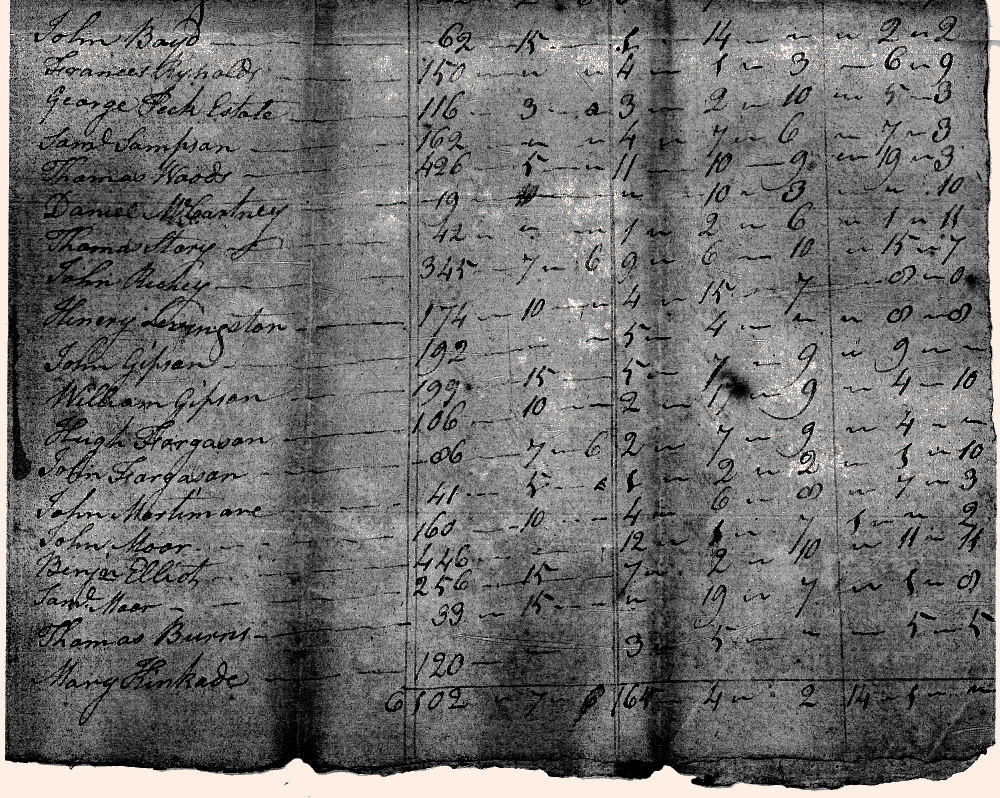 John Boyd — 62 — 15 — 1 — 14 — " — " 2 — 2
Frances Rynolds — 150 — " — " 4 — 1 — 3 — 6 — 9
George Peck Estate — 116 — 3 — 3 — 2 — 10 — 5 — 3
Saml Sampson — 162 — " — " 4 — 7 — 6 — 7 — 3
Thomas Woods — 426 — 5 — " 11 — 10 — 9 — 19 — 3
Daniel McCartney — 19 — " — 10 — 3 — " — 10
Thomas Story — 42 — " — " 1 — 2 — 6 — 1 — 11
John Richey — 345 — 7 — 6 9 — 6 — 10 — 15 — 7
Hinery Levingston — 174 — 10 — " 4 — 15 — 7 — 8 — 8
John Gipson — 192 — " 5 — 4 — " — " 8 — 8
William Gipson — 199 — 15 — 5 — 7 — 9 — 9 — "
Hugh Fargason — 106 — 10 — 2 — 17 — 9 — 4 — 10
John Fargason — 86 — 7 — 6 2 — 7 — 9 — 4 — "
John Martimore — 41 — 5 — 1 — 2 — 2 — 1 — 10
John Moor — 160 — 10 — 4 — 6 — 8 — 7 — 3
Benjn Elliot — 446 — 12 — 1 — 7 — 1 — " 2
Saml Moor — 256 — 15 — 7 — 2 — 10 — 11 — 11
Thomas Burns — 39 — 15 — " 19 — 7 — 1 — 8
Mary Kinkade — 120 — 3 — 5 — " — 5 — 5
6102 — 7 — 164 — 4 — 2 14 — 1 — "